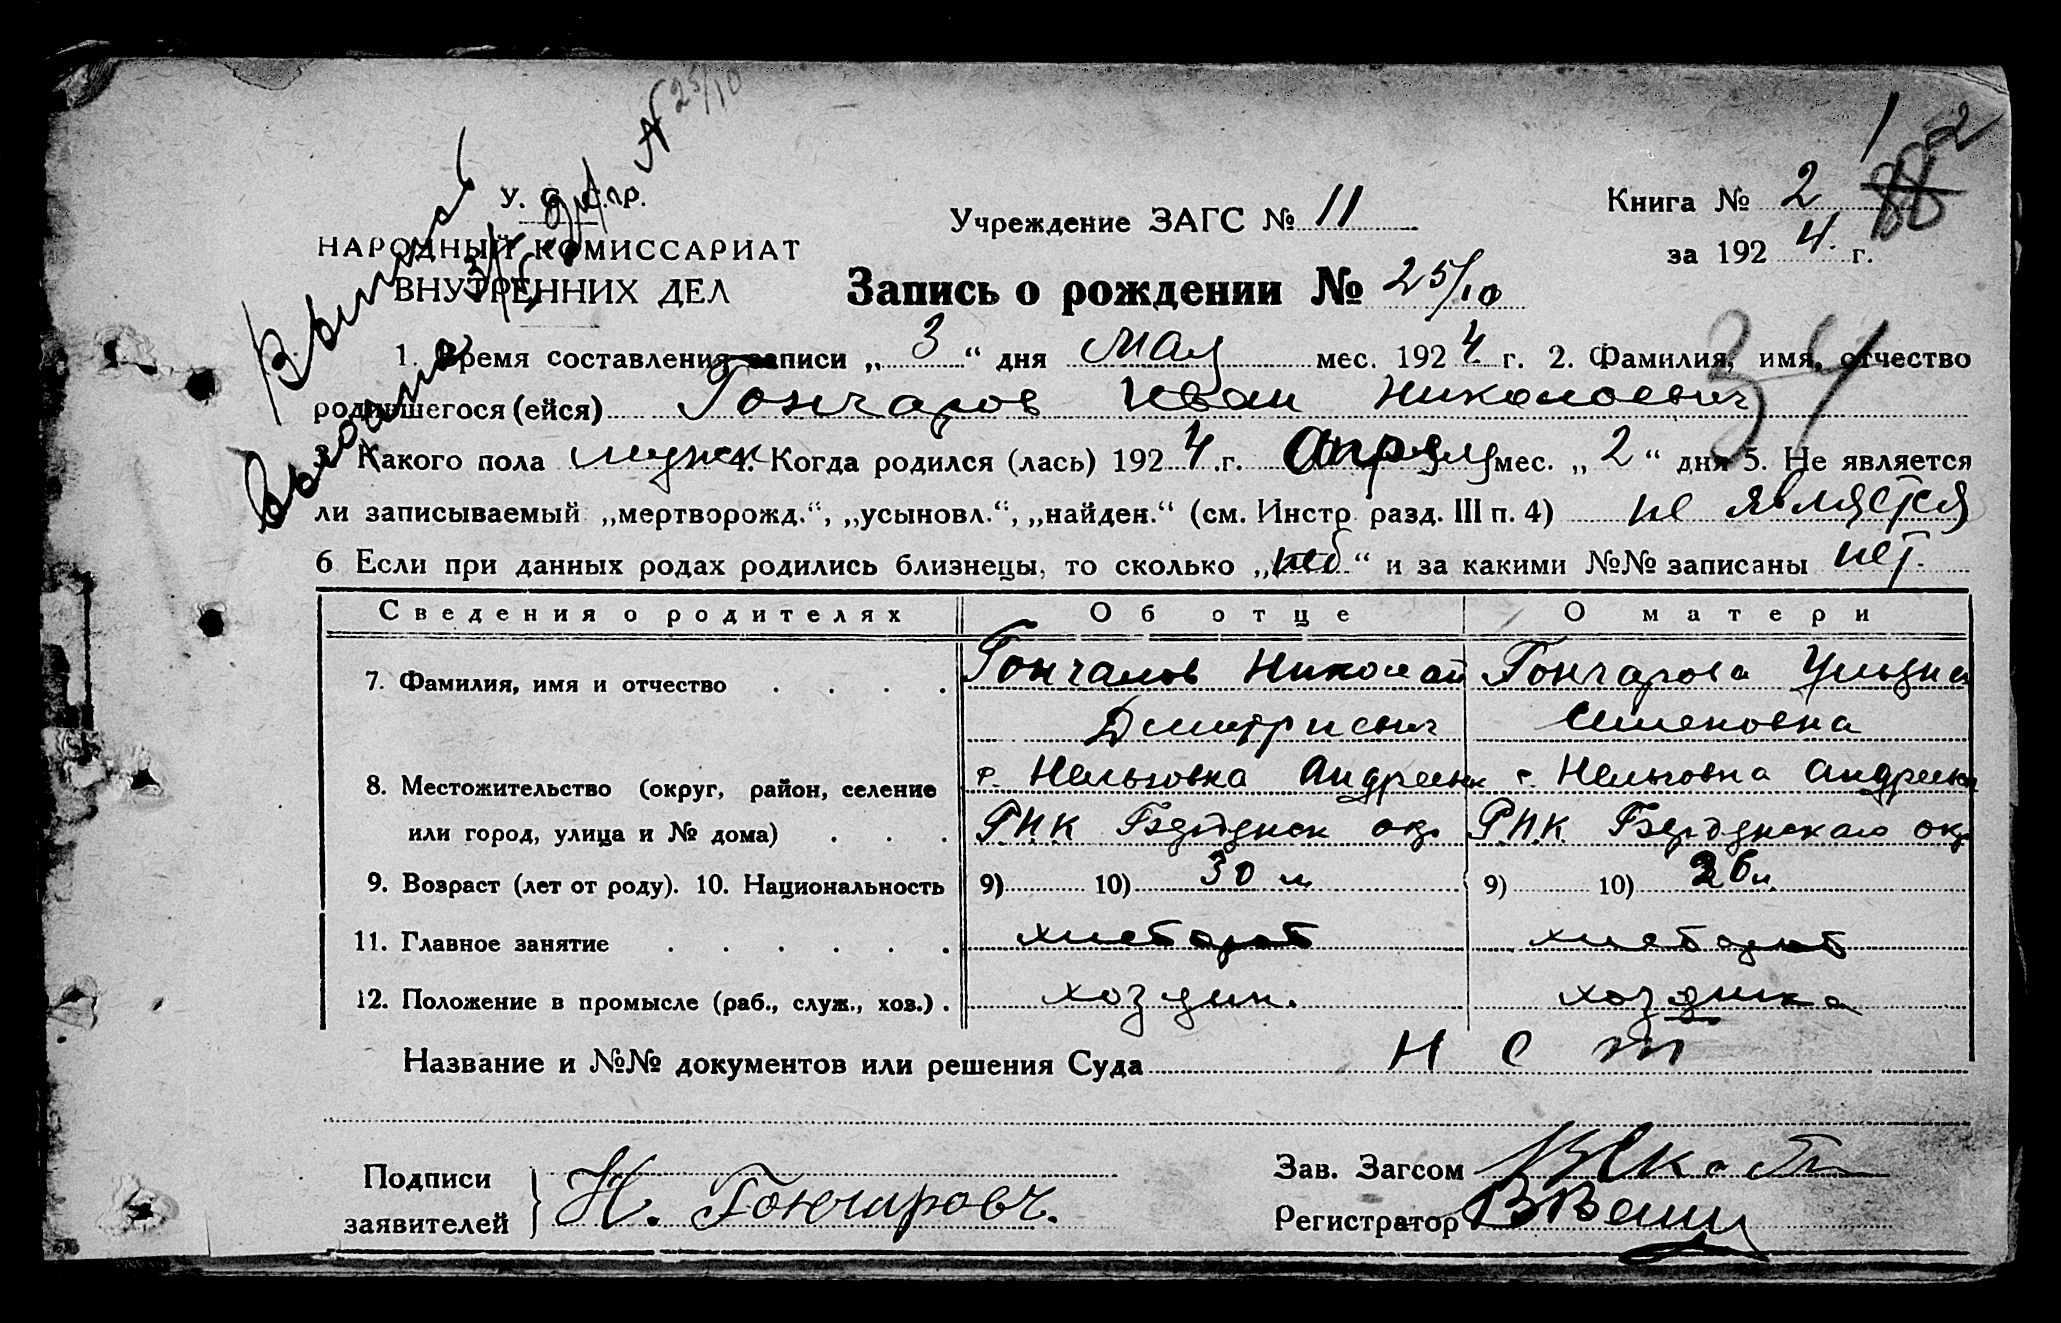 № 25/10
1
2
88
У. С. С. Р.
НАРОДНЫЙ КОМИССАРИАТ
ВНУТРЕННИХ ДЕЛ
Выпись
Выдана
Учреждение ЗАГС № 11
Книга № 2
за 1924 г.
Запись о рождении № 25/10
34
1. Время составления записи „ 3 “ дня мая мес. 1924 г. 2. Фамилия, имя, отчество
родившегося (ейся) Гончаров Иван Николаевич
3. Какого пола мужск 4. Когда родился (лась) 1924 г. Апреля мес. „ 2 “ дня 5. Не является
ли записываемый „мертворожд.“, „усыновл.“, „найден.“ (см. Инстр. разд. III п. 4) не является
6 Если при данных родах родились близнецы, то сколько „ “ и за какими №№ записаны нет.
Сведения о родителях Об отце О матери
7. Фамилия, имя и отчество Гончаров Николай Гончарова Ульяна
Дмитриевич Семеновна
8. Местожительство (округ, район, селение с. Нельговка Андреевк с. Нельговка Андреевк
или город, улица и № дома) РИК Бердянск окр РИК Бердянскаго окр
9. Возраст (лет от роду). 10. Национальность 9) 10) 30 л 9) 10) 26 л.
11. Главное занятие хлебороб хлебороб
12. Положение в промысле (раб., служ., хоз.) хозяин. хозяйка
Название и №№ документов или решения Суда Нет
Подписи
заявителей Н. Гончаровъ.
Зав. Загсом
Регистратор